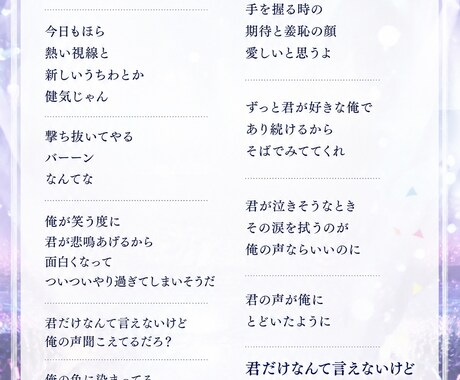 今日もほら
熱い視線と
新しいうちわとか
健気じゃん
撃ち抜いてやる
バーーン
なんてな
俺が笑う度に
君が悲鳴あげるから
面白くなって
ついついやり過ぎてしまいそうだ
君だけなんて言えないけど
俺の声聞こえてるだろ？
俺の色に染まってる
手を握る時の
期待と羞恥の顔
愛しいと思うよ
ずっと君が好きな俺で
あり続けるから
そばでみててくれ
君が泣きそうなとき
その涙を拭うのが
俺の声ならいいのに
君の声が俺に
とどいたように
君だけなんて言えないけど